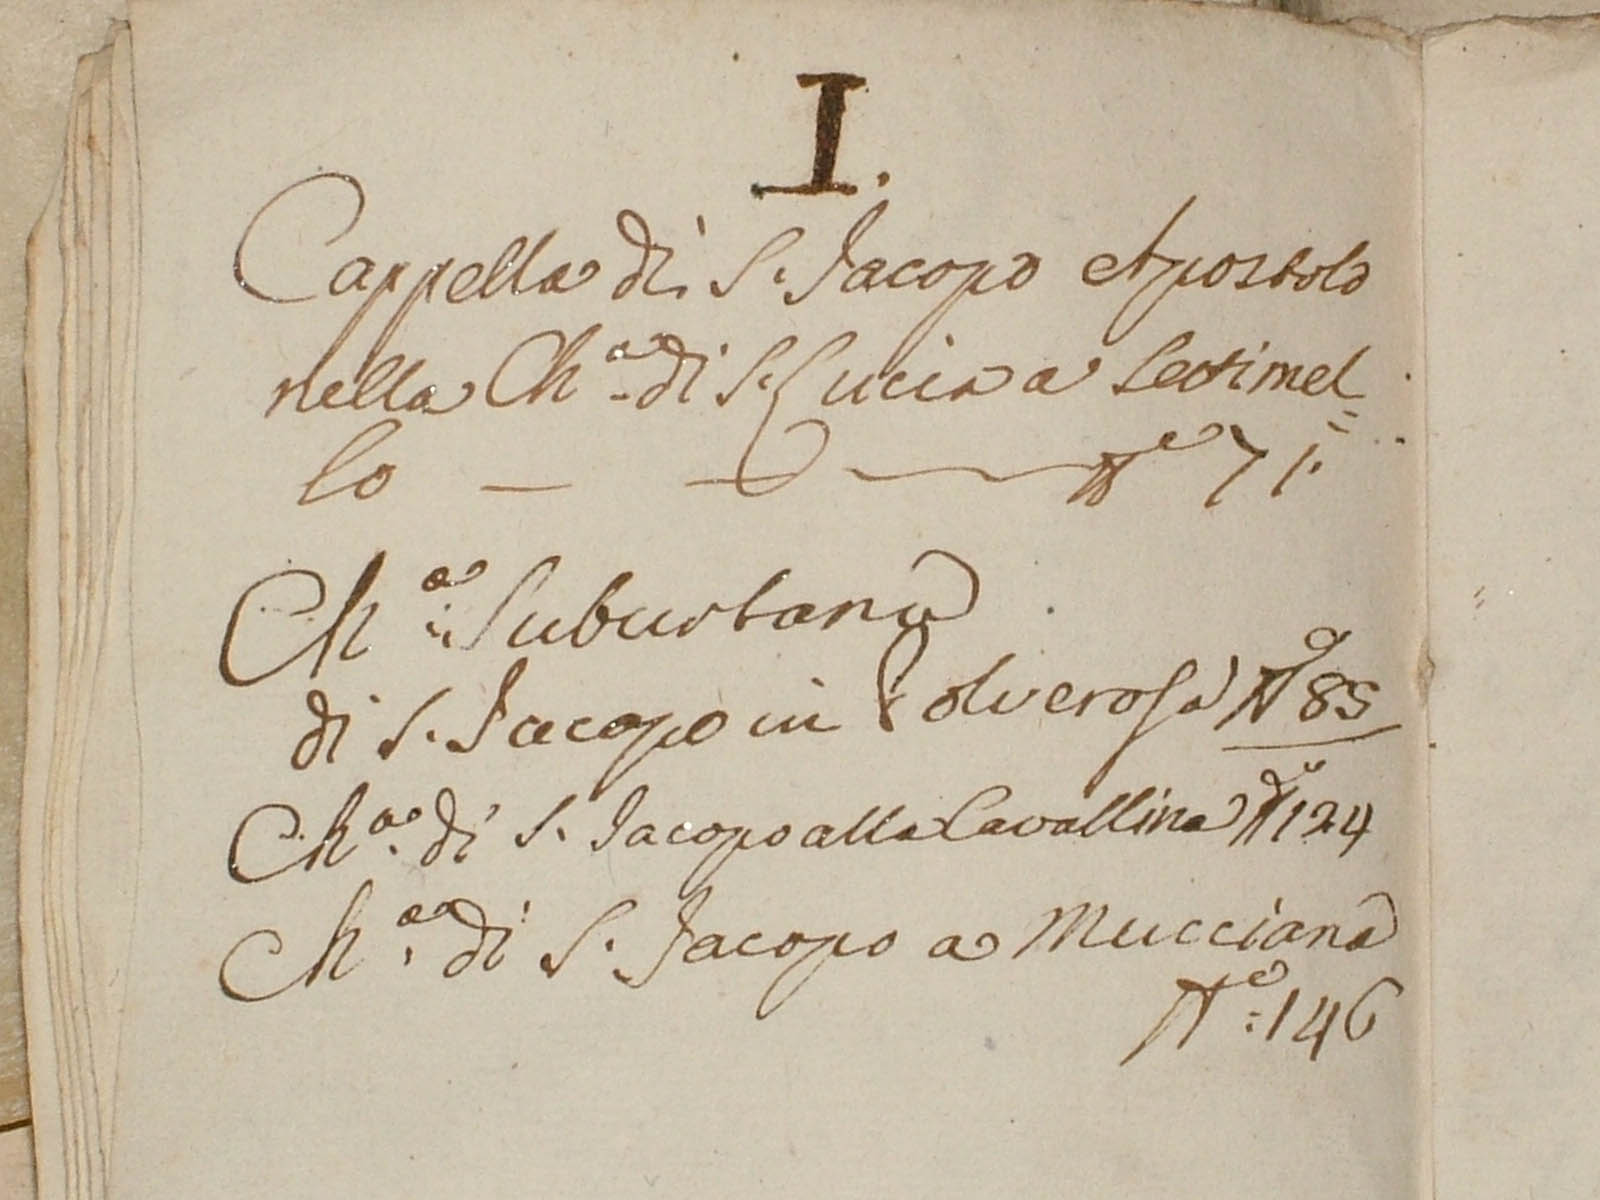 I.
Cappella di S. Jacopo Apostolo
nella Ch.ª di S. Lucia a Settimel=
lo — N.º 71.
Ch.ª Suburbana
di S. Jacopo in Polverosa Nº 85
Ch.ª di S. Jacopo alla Cavallina Nº 124
Ch.ª di S. Jacopo a Mucciana
N.º 146